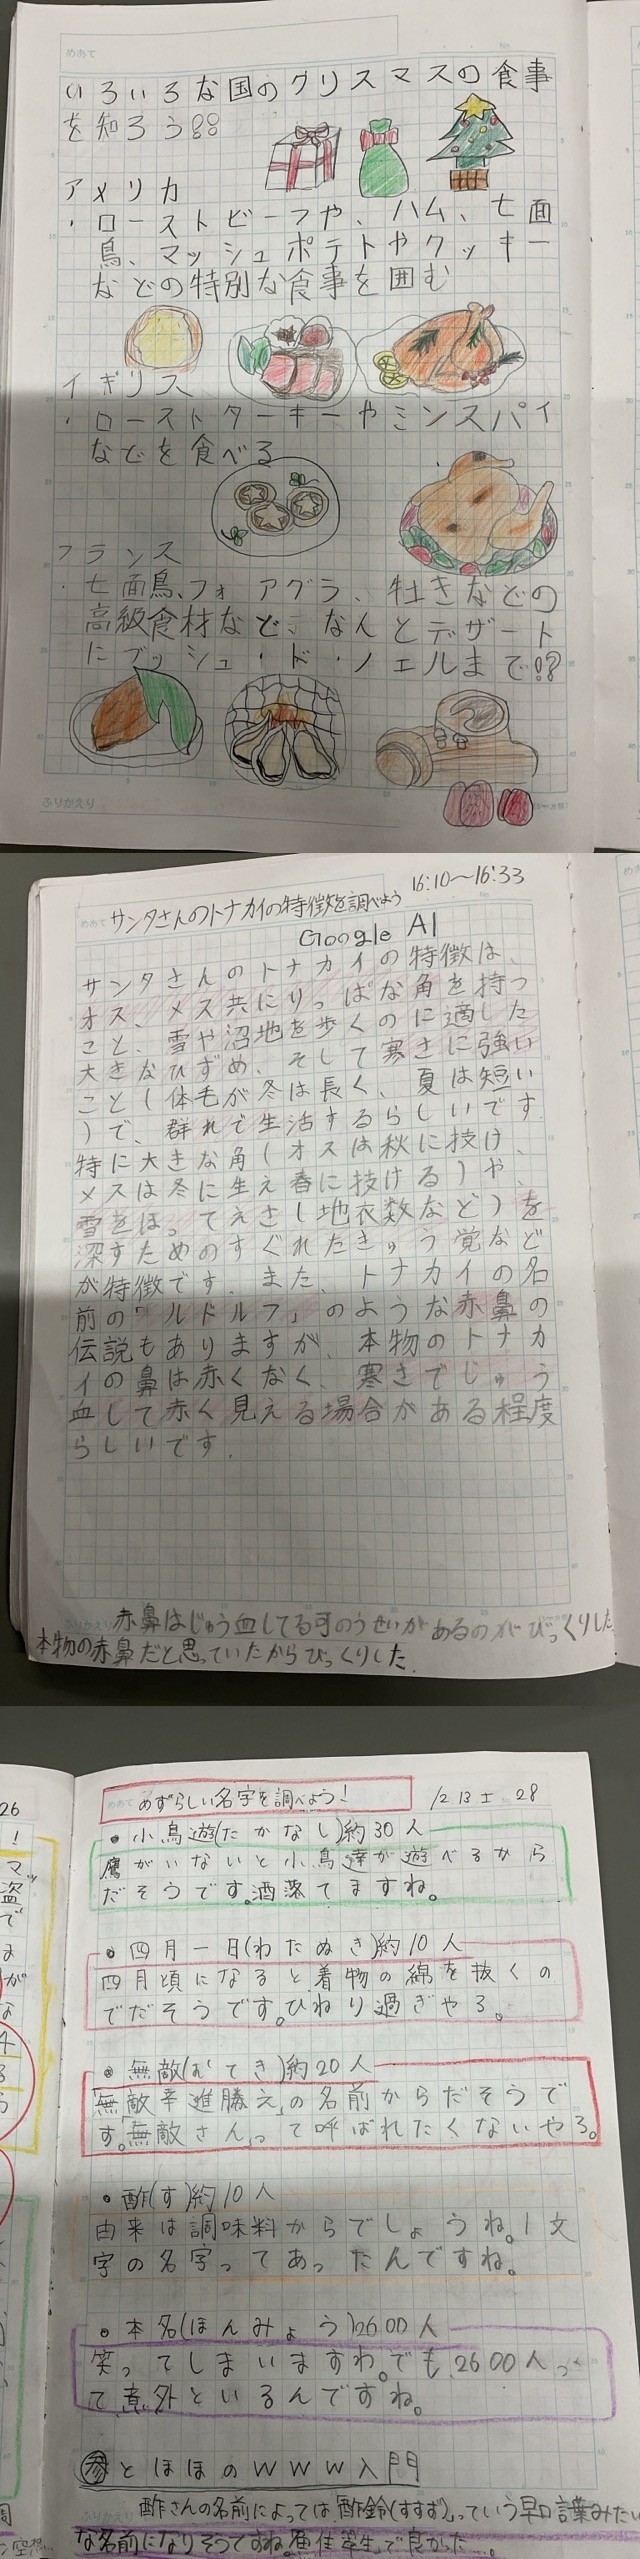 めあて
いろいろな国のクリスマスの食事
を知ろう!!
アメリカ
・ローストビーフや、ハム、七面
鳥、マッシュポテトやクッキー
などの特別な食事を囲む
イギリス
・ローストターキーやミンスパイ
などを食べる
フランス
・七面鳥、フォアグラ、牡きなどの
高級食材など、なんとデザート
にブッシュ・ド・ノエルまで!?
ふりかえり
16:10〜16:33
めあて サンタさんのトナカイの特徴を調べよう
Google AI
サンタさんのトナカイの特徴は、
オス、メス共にりっぱな角を持っ
こと、雪や沼地を歩くのに適した
大きなひずめ、そして寒さに強い
こと(体毛が冬は長く、夏は短い
)で、群れで生活するらしいです
特に大きな角(オスは秋に技け、
メスは冬に生え春に技ける)や、
雪をほってえさし地衣数など)を
深すためのすぐれたきゅう覚など
が特徴です。また、トナカイの名
前の「ルドルフ」のような赤鼻の
伝説もありますが、本物のトナカ
イの鼻は赤くなく、寒さでじゅう
血して赤く見える場合がある程度
らしいです.
赤鼻はじゅう血してる可のうせいがあるのがびっくりした
本物の赤鼻だと思っていたからびっくりした.
めあて めずらしい名字を調べよう!
12 13 土 28
・小鳥遊(たかなし)約30人
鷹がいないと小鳥達が遊べるから
だそうです。洒落てますね。
・四月一日(わたぬき)約10人
四月頃になると着物の綿を抜くの
でだそうです。ひねり過ぎやろ。
・無敵(むてき)約20人
「無敵幸進勝え」の名前からだそうで
す。「無敵さん」って呼ばれたくないやろ。
・酢(す)約10人
由来は調味料からでしょうね。1文
字の名字ってあったんですね。
・本名(ほんみょう)2600人
笑ってしまいますわ。でも、2600人っ
て意外といるんですね。
参とほほのWWW入門
ふりかえり
酢さんの名前によっては「酢鈴(すすず)」っていう早口言葉みたい
な名前になりそうですね。
で良かった…。
26